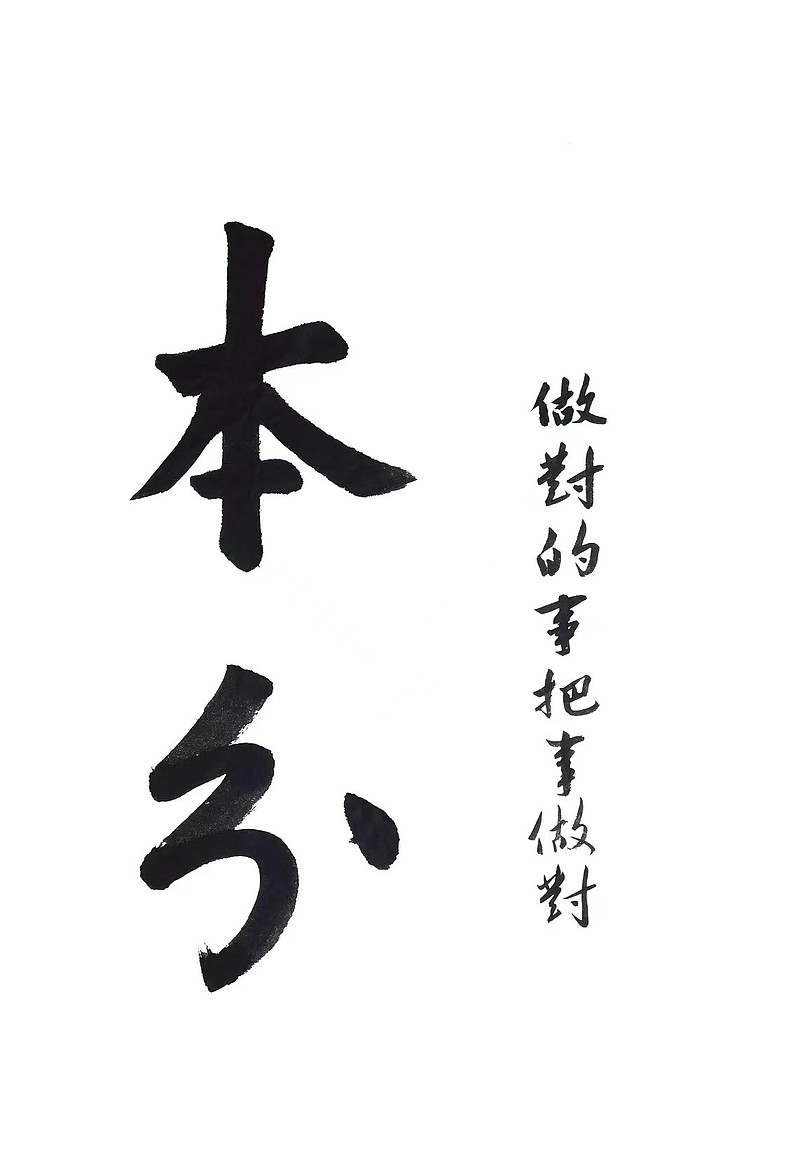 做對的事把事做對
本分